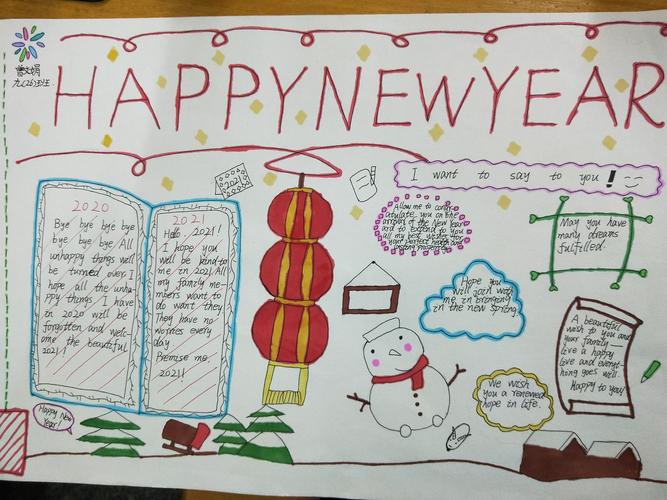 HAPPYNEWYEAR
九(26)班
2021
I want to say to you!
2020
Bye bye bye bye
bye bye bye. All
unhappy things will
be turned over. I
hope all the unha-
ppy things I have
in 2020 will be
forgotten and welc-
ome the beautiful
2021!
2021
Hello, 2021!
I hope you
will be kind to
me in 2021. All
my family me-
mbers want to
do want they
They have no
worries every
day
Promise me,
2021!
Allow me to congr-
atulate you on the
arrival of the New Year
and to extend to you
all my best wishes for
your perfect health and
May you have
many dreams
fulfilled.
Hope you
will join with
me in bringing
in the new spring.
A beautiful
wish to you and
your family—
live a happy
live and everyt-
hing goes will.
Happy to you!
We wish
you a renewed
hope in life.
Happy New
Year!